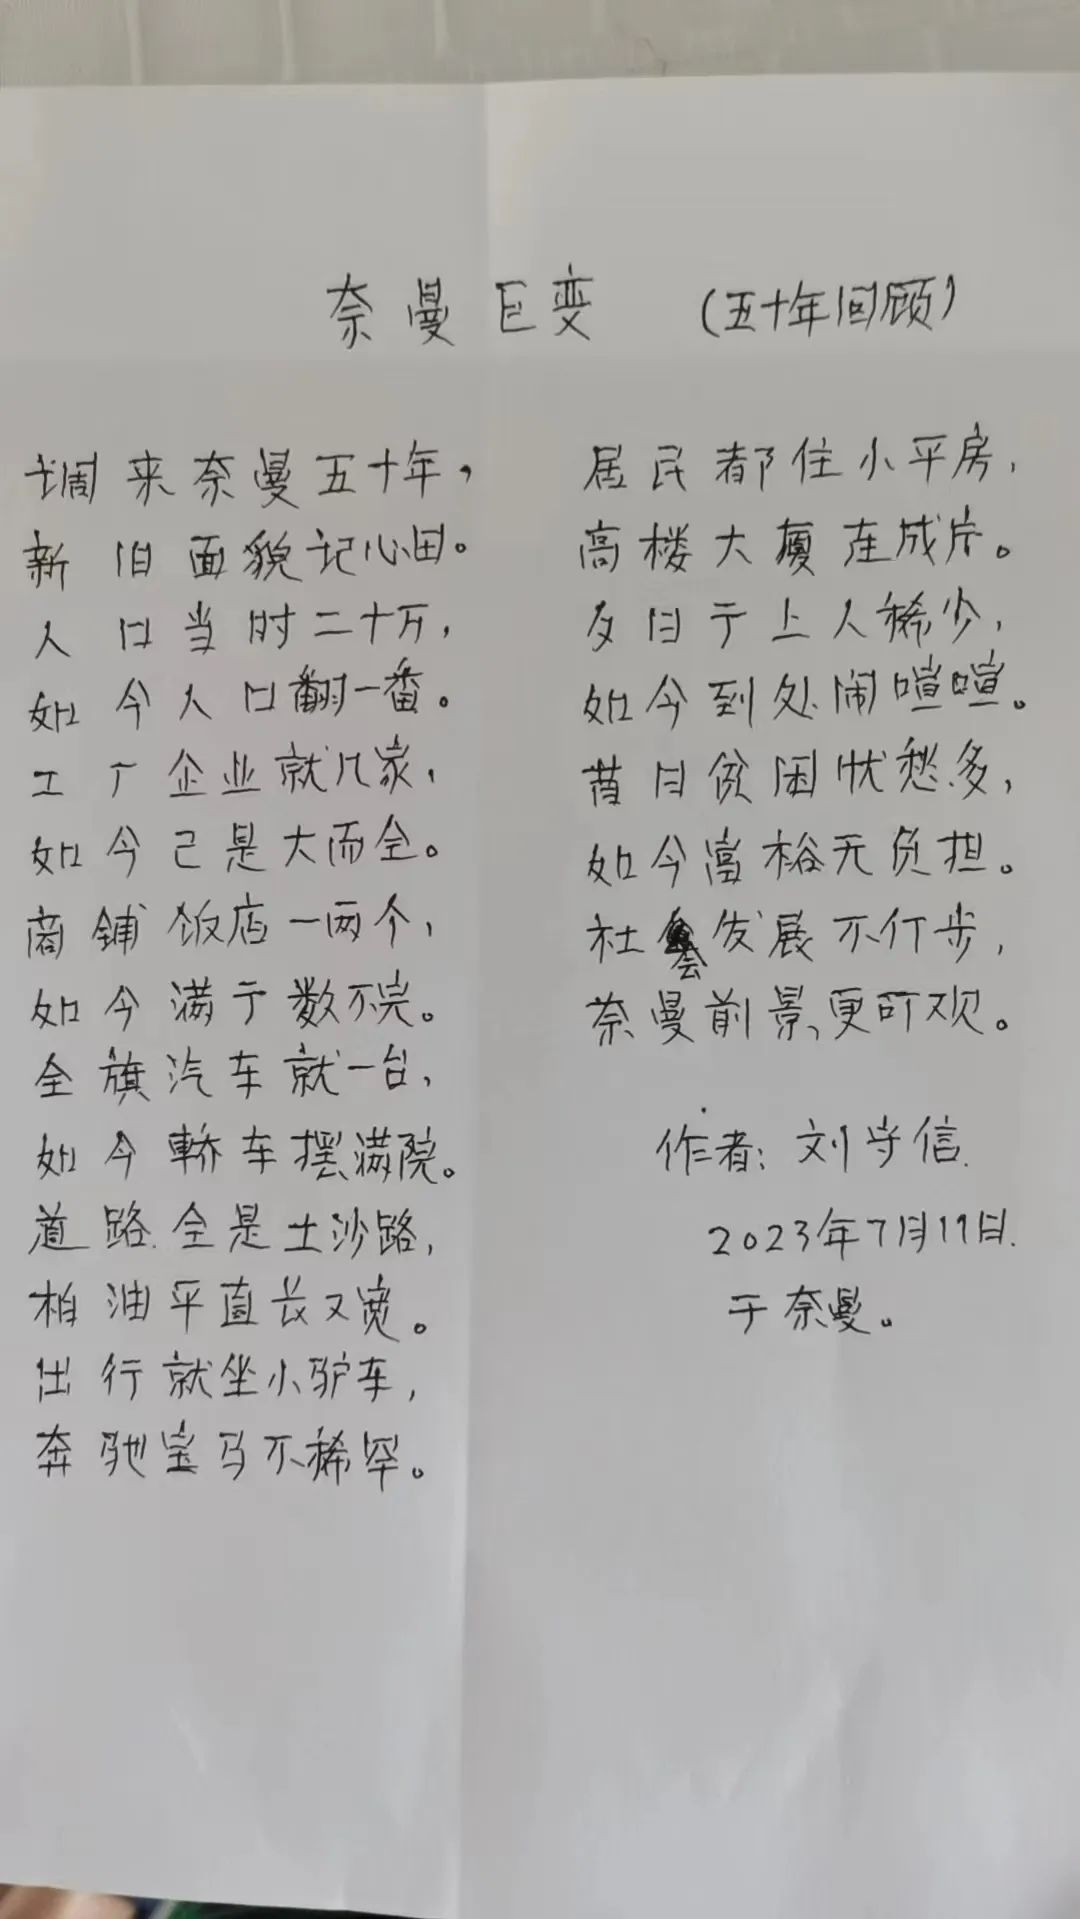 奈曼巨变 (五十年回顾)
调来奈曼五十年,
新旧面貌记心田。
人口当时二十万,
如今人口翻一番。
工厂企业就几家,
如今已是大而全。
商铺饭店一两个,
如今满于数不完。
全旗汽车就一台,
如今轿车摆满院。
道路全是土沙路,
柏油平直长又宽。
出行就坐小驴车,
奔驰宝马不稀罕。
居民都住小平房,
高楼大厦在成片。
夕日于上人稀少,
如今到处闹喧喧。
昔日贫困忧愁多,
如今富裕无负担。
社会发展不仃步,
奈曼前景更可观。
作者:刘守信.
2023年7月19日.
于奈曼。